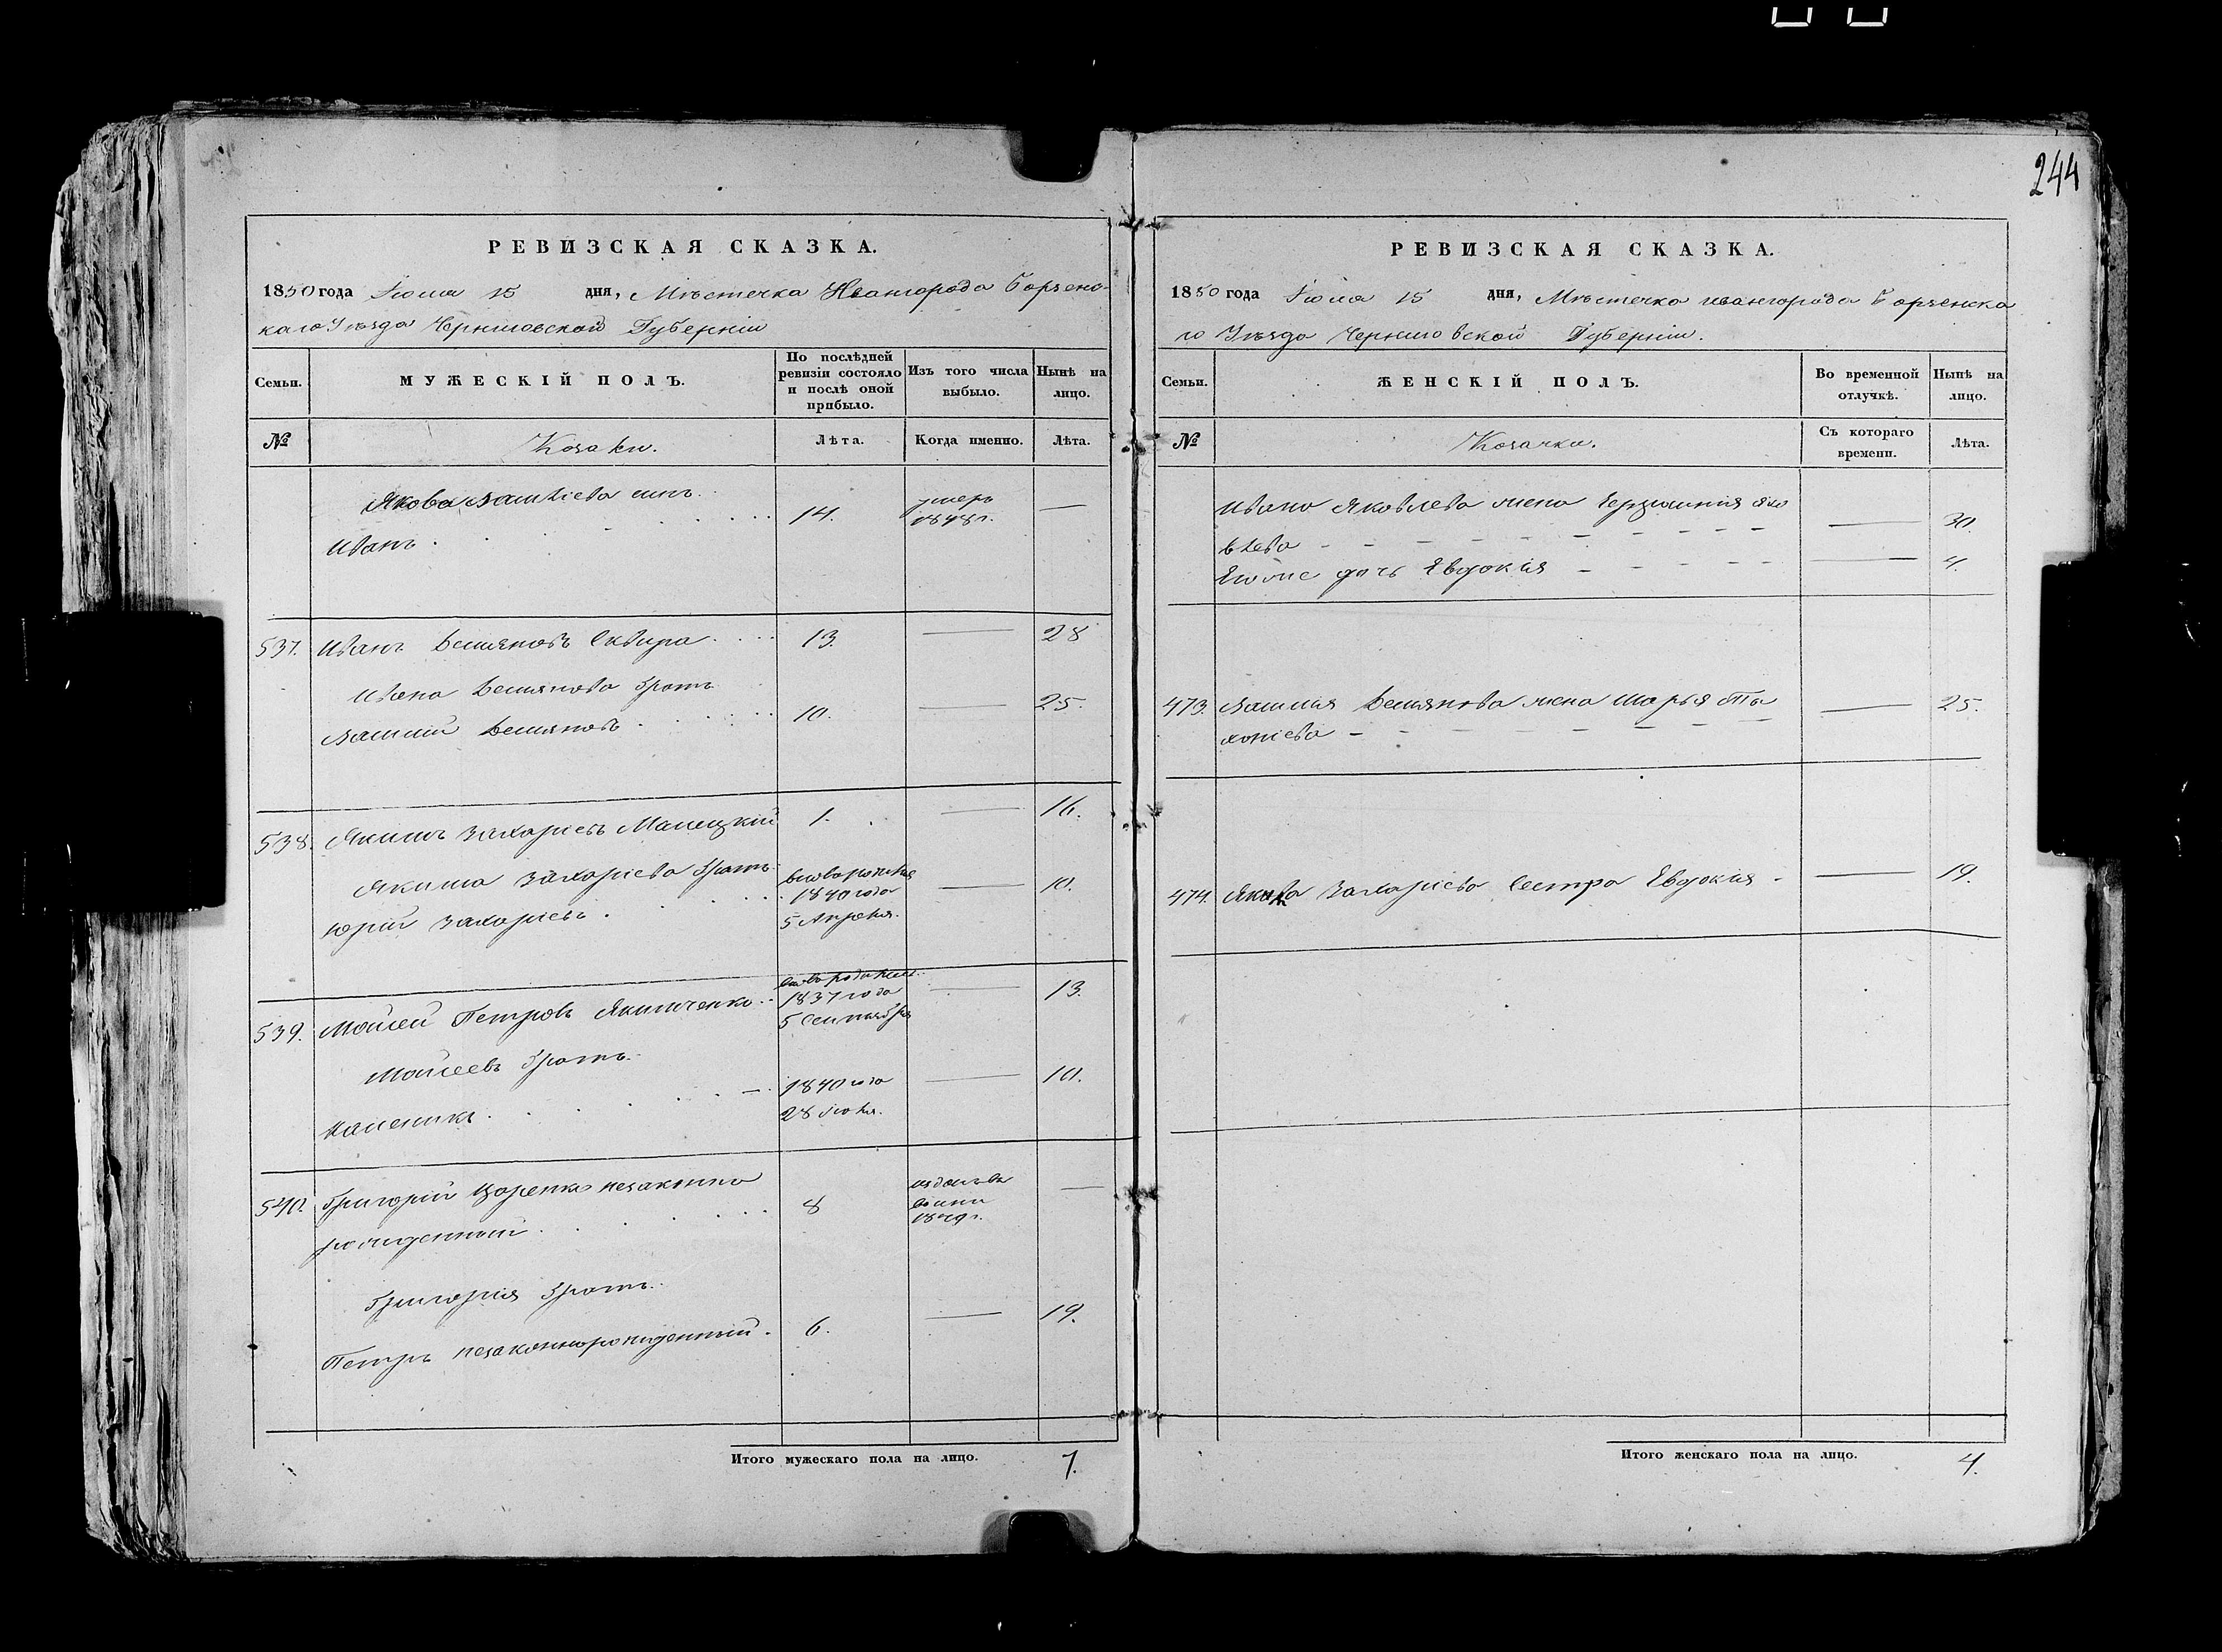 244
РЕВИЗСКАЯ СКАЗКА.
1850 года Июля 15 дня, Мѣстечка Ивангорода Борзенс-
каго Уѣзда Черниговской Губерніи
Семьи.
МУЖЕСКІЙ ПОЛЪ.
По послѣдней ревизіи состояло и послѣ оной прибыло.
Изъ того числа выбыло.
Нынѣ на лицо.
№
Козаки.
Лѣта.
Когда именно.
Лѣта.
Якова сынъ
Иванъ 14. умеръ 1848 г. —
537. Иванъ Демяновъ Сквира 13. — 28
Ивана Демянова братъ
Василій Демяновъ 10. — 25.
538. Якимъ Захаріевъ 1. — 16.
Якима Захаріева братъ
Юрій Захаріевъ 1840 года 5 Апреля. — 10.
539. Мойсей Петровъ Якименко 1837 года 5 Сентября — 13.
Мойсеевъ братъ
Калиникъ 1840 года 28 — 10.
540. Григорій Царенко незаконно
рожденный 8 1849 г. —
Григорія братъ
Петръ незаконнорожденный 6. — 19.
Итого мужескаго пола на лицо. 7.
РЕВИЗСКАЯ СКАЗКА.
1850 года Июля 15 дня, Мѣстечка Ивангорода Борзенска
го Уѣзда Черниговской Губерніи.
Семьи.
ЖЕНСКІЙ ПОЛЪ.
Во временной отлучкѣ.
Нынѣ на лицо.
№
Козачки.
Съ котораго времени.
Лѣта.
Ивана Яковлева жена Яко
влева — 30.
Его же дочь Евдокія — 4.
473. Василія Демянова жена Марья
— 25.
474. Захаріева сестра Евдокія — 19.
Итого женскаго пола на лицо. 4.